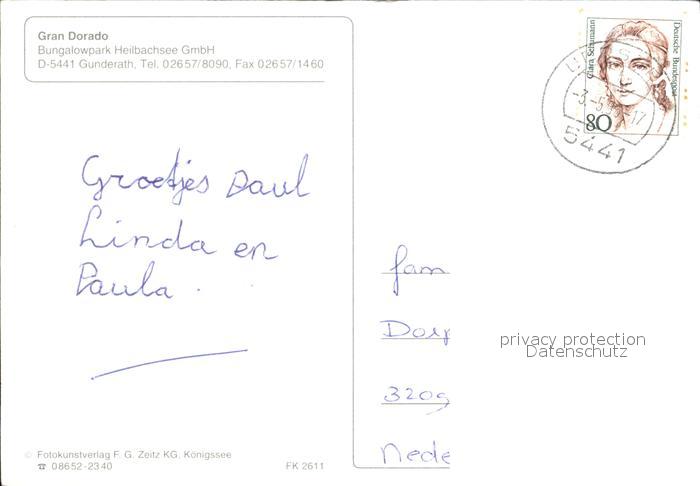 Gran Dorado
Bungalowpark Heilbachsee GmbH
D-5441 Gunderath, Tel. 02657/8090, Fax 02657/1460
Clara Schumann
Deutsche Bundespost
80
5441
Groetjes Paul
Linda en
Paula.
fam
Dorp
3209
Nede
privacy protection
Datenschutz
© Fotokunstverlag F. G. Zeitz KG. Königssee
☎ 08652-2340
FK 2611